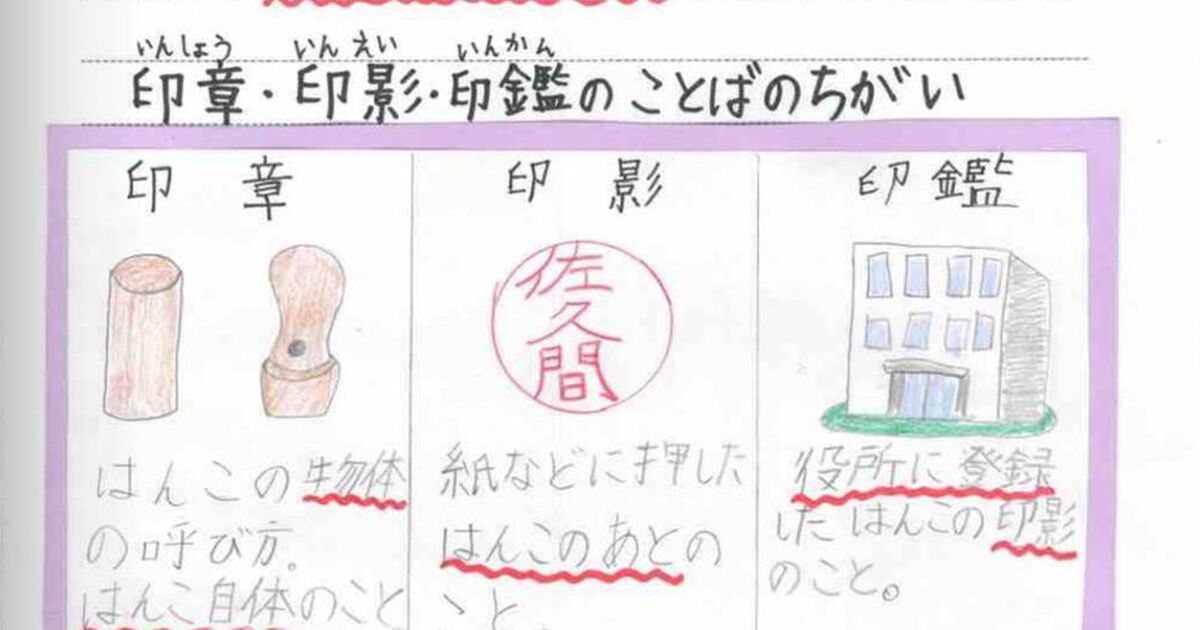 いんしょう いんえい いんかん
印章・印影・印鑑のことばのちがい
印章
はんこの物体
の呼び方。
はんこ自体のこと
印影
佐久間
紙などに押した
はんこのあとの
こと。
印鑑
役所に登録
したはんこの印影
のこと。